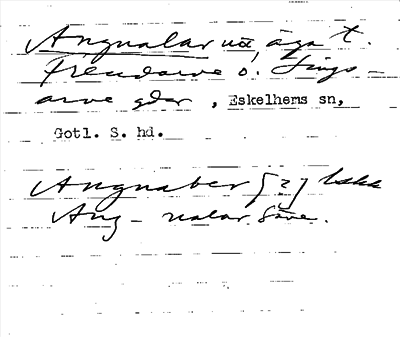 Angnalar utt, äga t.
Frendarve o. Tings-
arve gdar, Eskelhems sn,
Gotl. S. hd.
Angnaber [2]
Ang-nalar. Säve.